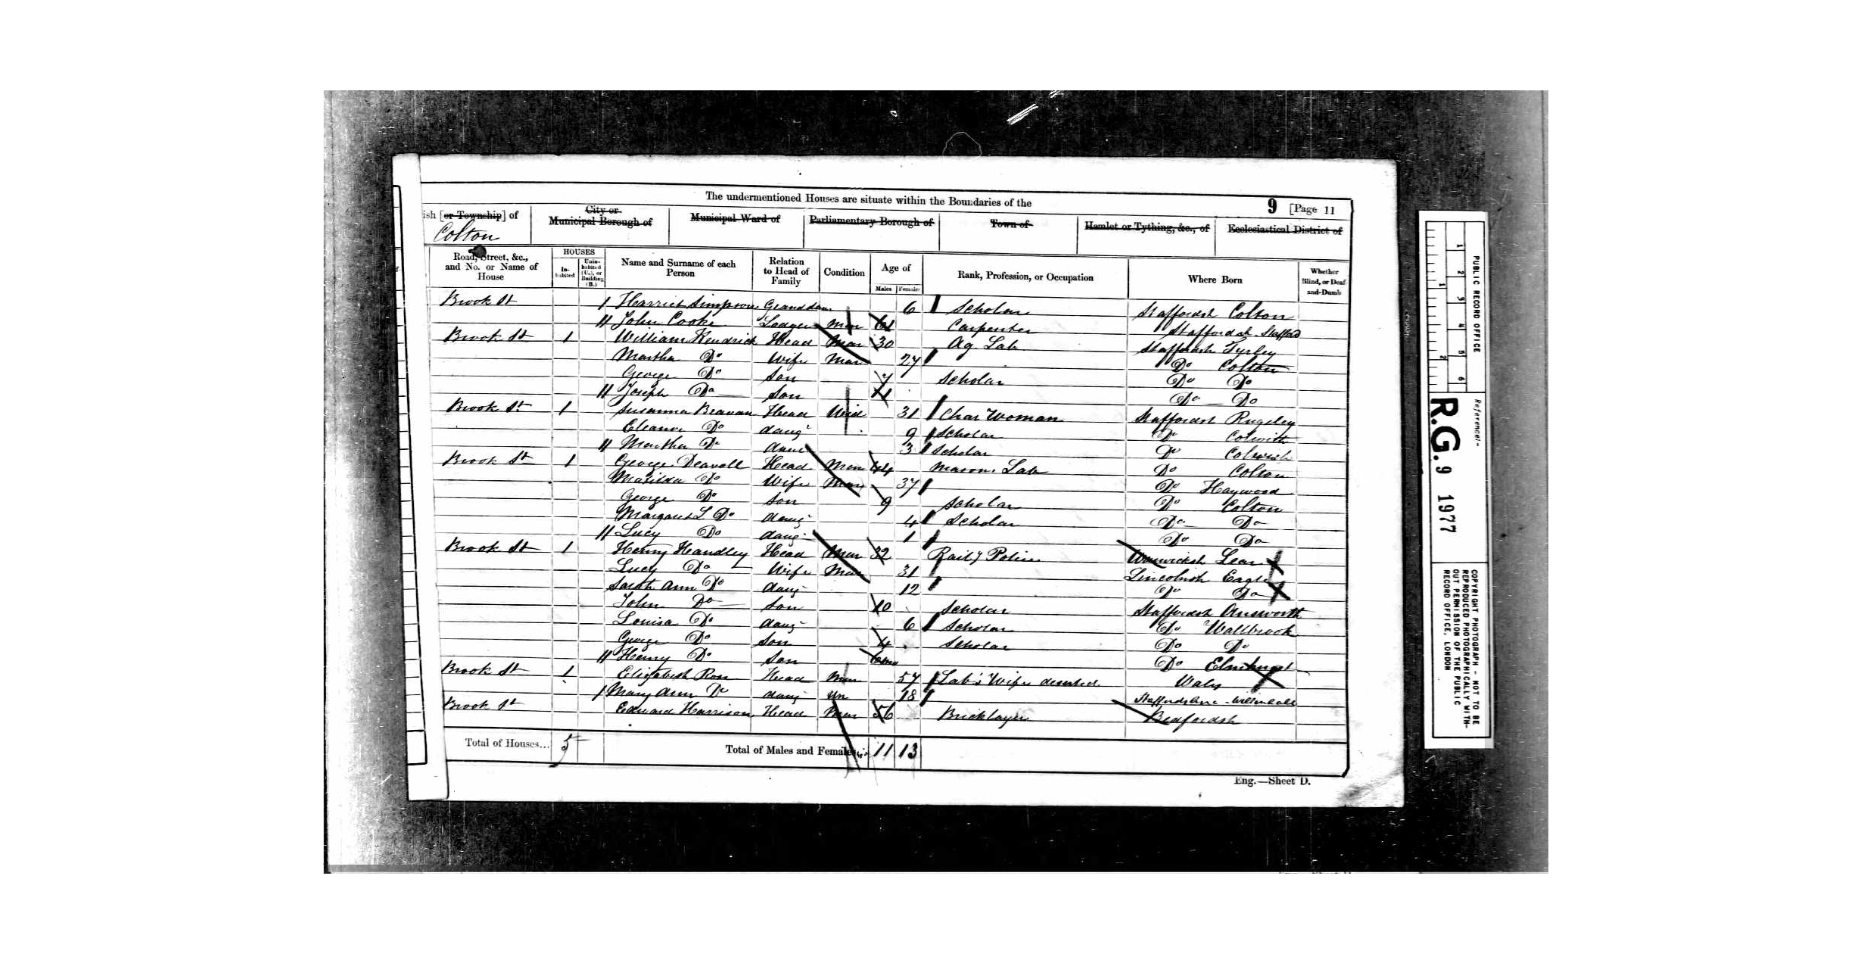 The undermentioned Houses are situate within the Boundaries of the
9 [Page 11
ish [or Township] of
Colton
City or Municipal Borough of
Municipal Ward of
Parliamentary Borough of
Town of
Hamlet or Tything, &c., of
Ecclesiastical District of
Road, Street, &c., and No. or Name of House
HOUSES
In-habited
Unin-habited (U.), or Building (B.)
Name and Surname of each Person
Relation to Head of Family
Condition
Age of
Males Females
Rank, Profession, or Occupation
Where Born
Whether Blind, or Deaf-and-Dumb
Brook St Harriet Simpson Granddau 6 Scholar Staffordsh Colton
John Cooke Lodger 61 Carpenter Staffordsh Stafford
Brook St 1 William Kendrick Head Mar 30 Ag Lab Staffordsh Tyrley
Martha Do Wife Mar 27 Do Colton
George Do Son 7 Scholar Do Do
Joseph Do Son Do Do
Brook St 1 Susanna Beavan Head Wid 31 Char Woman Staffordsh Rugeley
Eleanor Do daug 9 Scholar Do Colwich
Martha Do daug 3 Scholar Do Colwich
Brook St 1 George Deavall Head Mar 44 Masons Lab Do Colton
Matilda Do Wife Mar 37 Do Haywood
George Do Son 9 Scholar Do Colton
Margaret L Do daug 4 Scholar Do Do
Lucy Do daug 1 Do Do
Brook St 1 Henry Handley Head Mar 32 Raily Police Warwicksh
Lucy Do Wife Mar 31 Lincolnsh Eagle
Sarah Ann Do daug 12 Do Do
John Do Son 10 Scholar Staffordsh
Louisa Do daug 6 Scholar Do Wallbrook
George Do Son 4 Scholar Do Do
Henry Do Son 6mo Do Elmhurst
Brook St 1 Elizabeth Rose Head Mar 57 Lab's Wife deserted Wales
Mary Ann Do daug Un 18 Staffordshire
Brook St Edward Harrison Head Mar 56 Bricklayer Bedfordsh
Total of Houses... 5
Total of Males and Females... 11 13
Eng.—Sheet D.
PUBLIC RECORD OFFICE
Reference:-
R.G. 9 1977
COPYRIGHT PHOTOGRAPH - NOT TO BE REPRODUCED PHOTOGRAPHICALLY WITHOUT PERMISSION OF THE PUBLIC RECORD OFFICE, LONDON